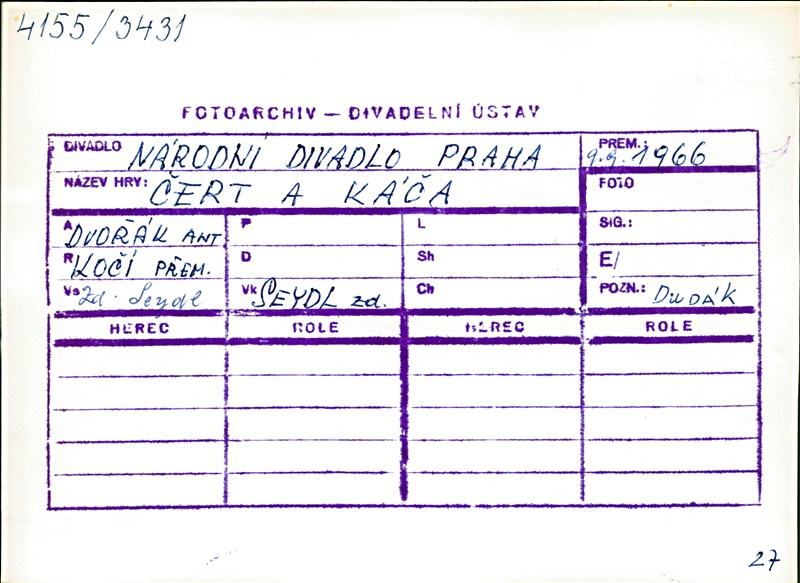 4155/3431
FOTOARCHIV — DIVADELNÍ ÚSTAV
DIVADLO NÁRODNÍ DIVADLO PRAHA PREM.: 9.9.1966
NÁZEV HRY: ČERT A KÁČA FOTO
A DVOŘÁK ANT P L SIG.:
R KOČÍ PŘEM. D Sh E/
Vs Zd. Seydl Vk SEYDL zd. Ch POZN.: DUDÁK
HEREC ROLE HEREC ROLE
27